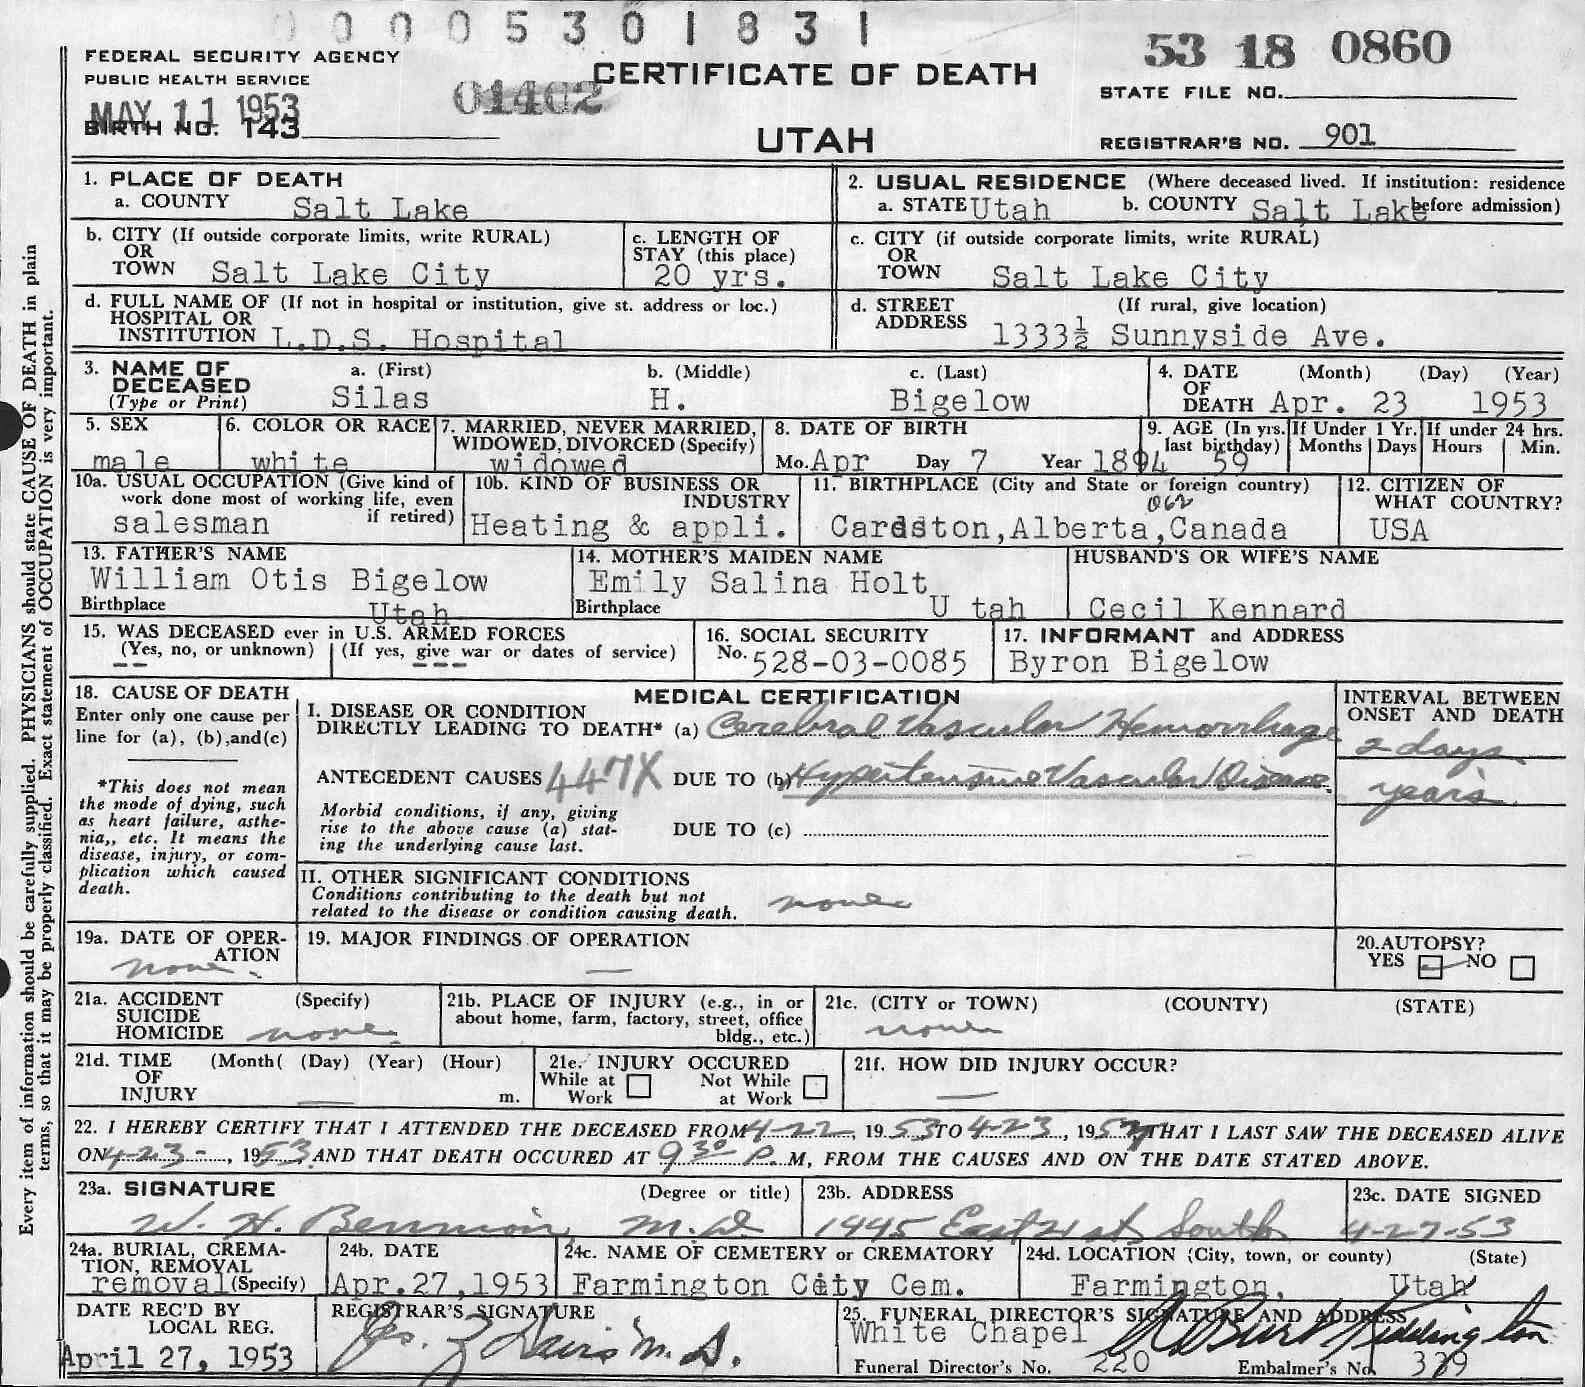 0 0 0 0 5 3 0 1 8 3 1
FEDERAL SECURITY AGENCY
PUBLIC HEALTH SERVICE
MAY 11 1953
BIRTH NO. 143
01402
CERTIFICATE OF DEATH
UTAH
53 18 0860
STATE FILE NO.
REGISTRAR'S NO. 901
Every item of information should be carefully supplied. PHYSICIANS should state CAUSE OF DEATH in plain
terms, so that it may be properly classified. Exact statement of OCCUPATION is very important.
1. PLACE OF DEATH
a. COUNTY Salt Lake
2. USUAL RESIDENCE (Where deceased lived. If institution: residence
a. STATE Utah b. COUNTY Salt Lake before admission)
b. CITY (If outside corporate limits, write RURAL)
OR
TOWN Salt Lake City
c. LENGTH OF
STAY (this place)
20 yrs.
c. CITY (if outside corporate limits, write RURAL)
OR
TOWN Salt Lake City
d. FULL NAME OF (If not in hospital or institution, give st. address or loc.)
HOSPITAL OR
INSTITUTION L.D.S. Hospital
d. STREET (If rural, give location)
ADDRESS 1333½ Sunnyside Ave.
3. NAME OF
DECEASED
(Type or Print)
a. (First)
Silas
b. (Middle)
H.
c. (Last)
Bigelow
4. DATE (Month) (Day) (Year)
OF
DEATH Apr. 23 1953
5. SEX
male
6. COLOR OR RACE
white
7. MARRIED, NEVER MARRIED,
WIDOWED, DIVORCED (Specify)
widowed
8. DATE OF BIRTH
Mo. Apr Day 7 Year 1894
9. AGE (In yrs.
last birthday)
59
If Under 1 Yr.
Months Days
If under 24 hrs.
Hours Min.
10a. USUAL OCCUPATION (Give kind of
work done most of working life, even
if retired)
salesman
10b. KIND OF BUSINESS OR
INDUSTRY
Heating & appli.
11. BIRTHPLACE (City and State or foreign country)
062
Cardston, Alberta, Canada
12. CITIZEN OF
WHAT COUNTRY?
USA
13. FATHER'S NAME
William Otis Bigelow
Birthplace Utah
14. MOTHER'S MAIDEN NAME
Emily Salina Holt
Birthplace U tah
HUSBAND'S OR WIFE'S NAME
Cecil Kennard
15. WAS DECEASED ever in U.S. ARMED FORCES
(Yes, no, or unknown) (If yes, give war or dates of service)
-- ---
16. SOCIAL SECURITY
No. 528-03-0085
17. INFORMANT and ADDRESS
Byron Bigelow
18. CAUSE OF DEATH
Enter only one cause per
line for (a), (b), and(c)
*This does not mean
the mode of dying, such
as heart failure, asthe-
nia,, etc. It means the
disease, injury, or com-
plication which caused
death.
MEDICAL CERTIFICATION
I. DISEASE OR CONDITION
DIRECTLY LEADING TO DEATH* (a) Cerebral Vascular Hemorrhage
ANTECEDENT CAUSES 447X DUE TO (b) Hypertensive Vascular Disease
Morbid conditions, if any, giving
rise to the above cause (a) stat-
ing the underlying cause last.
DUE TO (c)
INTERVAL BETWEEN
ONSET AND DEATH
2 days
years
II. OTHER SIGNIFICANT CONDITIONS
Conditions contributing to the death but not
related to the disease or condition causing death. none
19a. DATE OF OPER-
ATION
none
19. MAJOR FINDINGS OF OPERATION
—
20. AUTOPSY?
YES NO
21a. ACCIDENT (Specify)
SUICIDE
HOMICIDE none
21b. PLACE OF INJURY (e.g., in or
about home, farm, factory, street, office
bldg., etc.)
21c. (CITY or TOWN) (COUNTY) (STATE)
none
21d. TIME (Month( (Day) (Year) (Hour)
OF
INJURY — m.
21e. INJURY OCCURED
While at Not While
Work at Work
21f. HOW DID INJURY OCCUR?
—
22. I HEREBY CERTIFY THAT I ATTENDED THE DECEASED FROM 4-22, 1953 TO 4-23, 1953 THAT I LAST SAW THE DECEASED ALIVE
ON 4-23-, 1953, AND THAT DEATH OCCURED AT 9 30 P.M, FROM THE CAUSES AND ON THE DATE STATED ABOVE.
23a. SIGNATURE (Degree or title)
W. H. Bennion, M.D.
23b. ADDRESS
East South
23c. DATE SIGNED
4-27-53
24a. BURIAL, CREMA-
TION, REMOVAL
removal (Specify)
24b. DATE
Apr. 27, 1953
24c. NAME OF CEMETERY or CREMATORY
Farmington City Cem.
24d. LOCATION (City, town, or county) (State)
Farmington, Utah
DATE REC'D BY
LOCAL REG.
April 27, 1953
REGISTRAR'S SIGNATURE
Davis M.D.
25. FUNERAL DIRECTOR'S SIGNATURE AND ADDRESS
White Chapel
Funeral Director's No. 220 Embalmer's No. 339